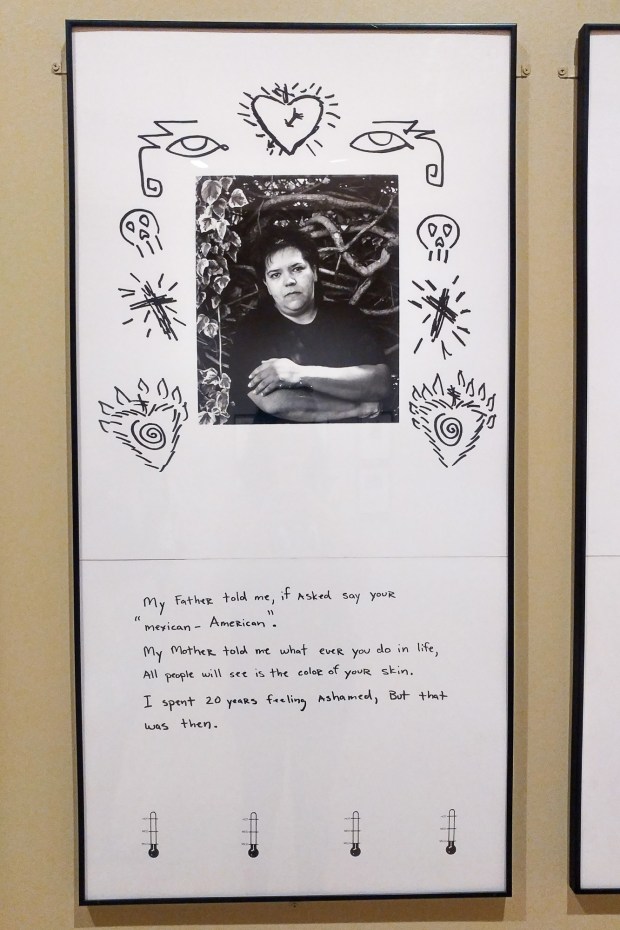 My Father told me, if Asked say your
"mexican - American".
My Mother told me what ever you do in life,
All people will see is the color of your skin.
I spent 20 years feeling Ashamed, But that
was then.